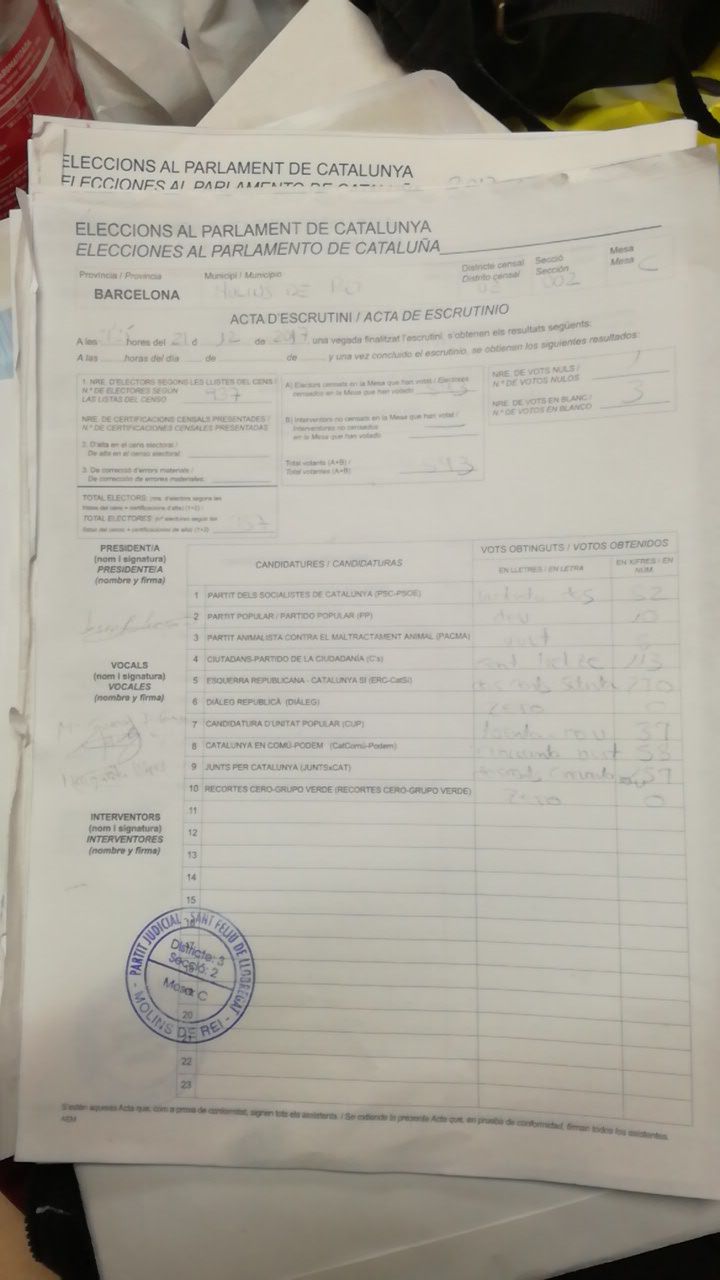 ELECCIONS AL PARLAMENT DE CATALUNYA
ELECCIONES AL PARLAMENTO DE
ELECCIONS AL PARLAMENT DE CATALUNYA
ELECCIONES AL PARLAMENTO DE CATALUÑA
Província / Provincia Municipi / Municipio Districte censal Secció Mesa
Distrito censal Sección Mesa C
BARCELONA MOLINS DE REI 002
ACTA D'ESCRUTINI / ACTA DE ESCRUTINIO
A les hores del 21 d 12 de 2017, una vegada finalitzat l'escrutini, s'obtenen els resultats següents:
A las horas del día de de y una vez concluido el escrutinio, se obtienen los siguientes resultados:
1. NRE. D'ELECTORS SEGONS LES LLISTES DEL CENS /
N.º DE ELECTORES SEGÚN
LAS LISTAS DEL CENSO 937
NRE. DE CERTIFICACIONS CENSALS PRESENTADES /
N.º DE CERTIFICACIONES CENSALES PRESENTADAS
2. D'alta en el cens electoral /
De alta en el censo electoral
3. De correcció d'errors materials /
De corrección de errores materiales
TOTAL ELECTORS: (nre. d'electors segons les
llistes del cens + certificacions d'alta) (1+2) /
TOTAL ELECTORES: (nº electores según las
listas del censo + certificaciones de alta) (1+2)
A) Electors censats en la Mesa que han votat / Electores
censados en la Mesa que han votado
B) Interventors no censats en la Mesa que han votat /
Interventores no censados
en la Mesa que han votado
Total votants (A+B) /
Total votantes (A+B)
NRE. DE VOTS NULS /
N.º DE VOTOS NULOS 1
NRE. DE VOTS EN BLANC /
N.º DE VOTOS EN BLANCO 3
PRESIDENT/A
(nom i signatura)
PRESIDENTE/A
(nombre y firma)
VOCALS
(nom i signatura)
VOCALES
(nombre y firma)
INTERVENTORS
(nom i signatura)
INTERVENTORES
(nombre y firma)
CANDIDATURES / CANDIDATURAS VOTS OBTINGUTS / VOTOS OBTENIDOS
EN LLETRES / EN LETRA EN XIFRES / EN NÚM.
1 PARTIT DELS SOCIALISTES DE CATALUNYA (PSC-PSOE) 52
2 PARTIT POPULAR / PARTIDO POPULAR (PP) deu 10
3 PARTIT ANIMALISTA CONTRA EL MALTRACTAMENT ANIMAL (PACMA) vuit
4 CIUTADANS-PARTIDO DE LA CIUDADANÍA (C's) cent tretze 113
5 ESQUERRA REPUBLICANA - CATALUNYA SÍ (ERC-CatSí) dos cents setanta 270
6 DIÀLEG REPUBLICÀ (DIÀLEG) zero 0
7 CANDIDATURA D'UNITAT POPULAR (CUP) trenta-nou 39
8 CATALUNYA EN COMÚ-PODEM (CatComú-Podem) cinquanta vuit 58
9 JUNTS PER CATALUNYA (JUNTSxCAT)
10 RECORTES CERO-GRUPO VERDE (RECORTES CERO-GRUPO VERDE) zero 0
11
12
13
14
15
20
21
22
23
PARTIT JUDICIAL - SANT FELIU DE LLOBREGAT
Districte: 3
Secció: 2
Mesa: C
- MOLINS DE REI -
S'estén aquesta Acta que, com a prova de conformitat, signen tots els assistents. / Se extiende la presente Acta que, en prueba de conformidad, firman todos los asistentes.